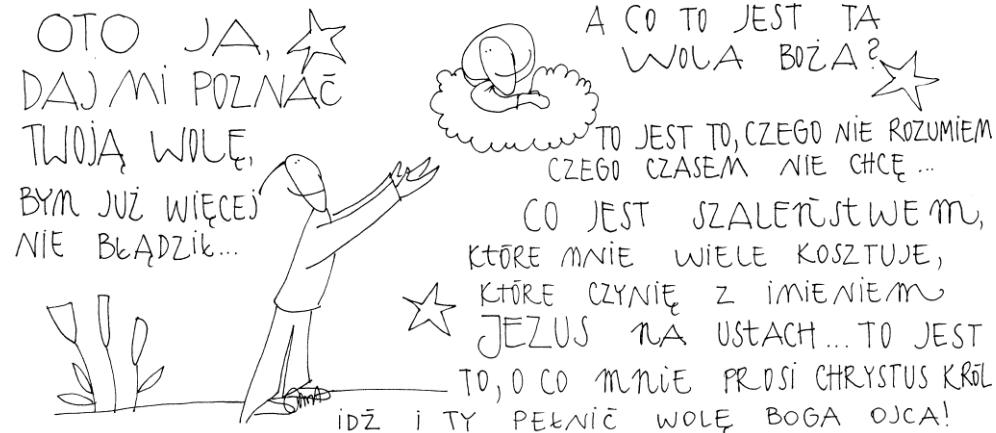 OTO JA,
DAJ MI POZNAĆ
TWOJĄ WOLĘ,
BYM JUŻ WIĘCEJ
NIE BŁĄDZIŁ...
A CO TO JEST TA
WOLA BOŻA?
TO JEST TO, CZEGO NIE ROZUMIEM
CZEGO CZASEM NIE CHCĘ...
CO JEST SZALEŃSTWEM,
KTÓRE MNIE WIELE KOSZTUJE,
KTÓRE CZYNIĘ Z IMIENIEM
JEZUS NA USTACH... TO JEST
TO, O CO MNIE PROSI CHRYSTUS KRÓL
IDŹ I TY PEŁNIĆ WOLĘ BOGA OJCA!